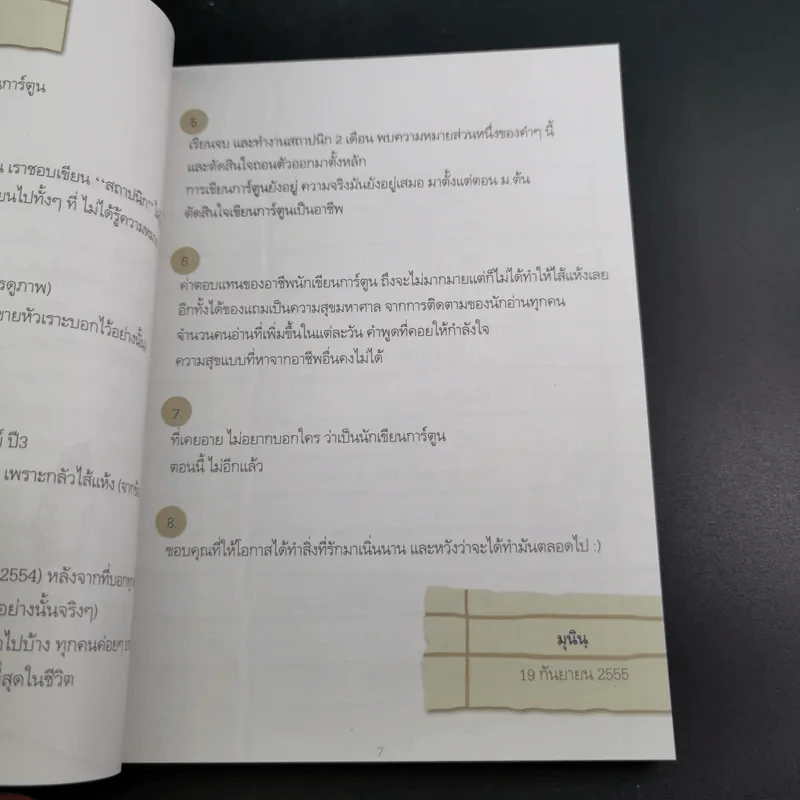 นการ์ตูน
เราชอบเขียน “สถาปนิก”
ยนไปทั้งๆ ที่ ไม่ได้รู้ความหมาย
รดูภาพ)
ขายหัวเราะบอกไว้อย่างนั้น
ปี3
เพราะกลัวไส้แห้ง
2554) หลังจากที่บอก
อย่างนั้นจริงๆ)
ไปบ้าง ทุกคนค่อยๆ
ที่สุดในชีวิต
5.
เรียนจบ และทำงานสถาปนิก 2 เดือน พบความหมายส่วนหนึ่งของคำๆ นี้
และตัดสินใจถอนตัวออกมาตั้งหลัก
การเขียนการ์ตูนยังอยู่ ความจริงมันยังอยู่เสมอ มาตั้งแต่ตอน ม.ต้น
ตัดสินใจเขียนการ์ตูนเป็นอาชีพ
6.
ค่าตอบแทนของอาชีพนักเขียนการ์ตูน ถึงจะไม่มากมายแต่ก็ไม่ได้ทำให้ไส้แห้งเลย
อีกทั้งได้ของแถมเป็นความสุขมหาศาล จากการติดตามของนักอ่านทุกคน
จำนวนคนอ่านที่เพิ่มขึ้นในแต่ละวัน คำพูดที่คอยให้กำลังใจ
ความสุขแบบที่หาจากอาชีพอื่นคงไม่ได้
7.
ที่เคยอาย ไม่อยากบอกใคร ว่าเป็นนักเขียนการ์ตูน
ตอนนี้ ไม่อีกแล้ว
8.
ขอบคุณที่ให้โอกาสได้ทำสิ่งที่รักมาเนิ่นนาน และหวังว่าจะได้ทำมันตลอดไป :)
มุนินฺ
19 กันยายน 2555
7